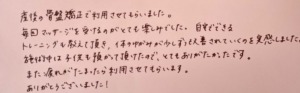 産後の骨盤矯正で利用させてもらいました。
毎回マッサージを受けるのがとても楽しみでした。自宅でできる
トレーニングも教えて頂き、体のゆがみが少しずつ改善されていくのを実感しました。
施術中は子供も預かって頂けたので、とてもありがたかったです。
また疲れがたまったら利用させてもらいます。
ありがとうございました!